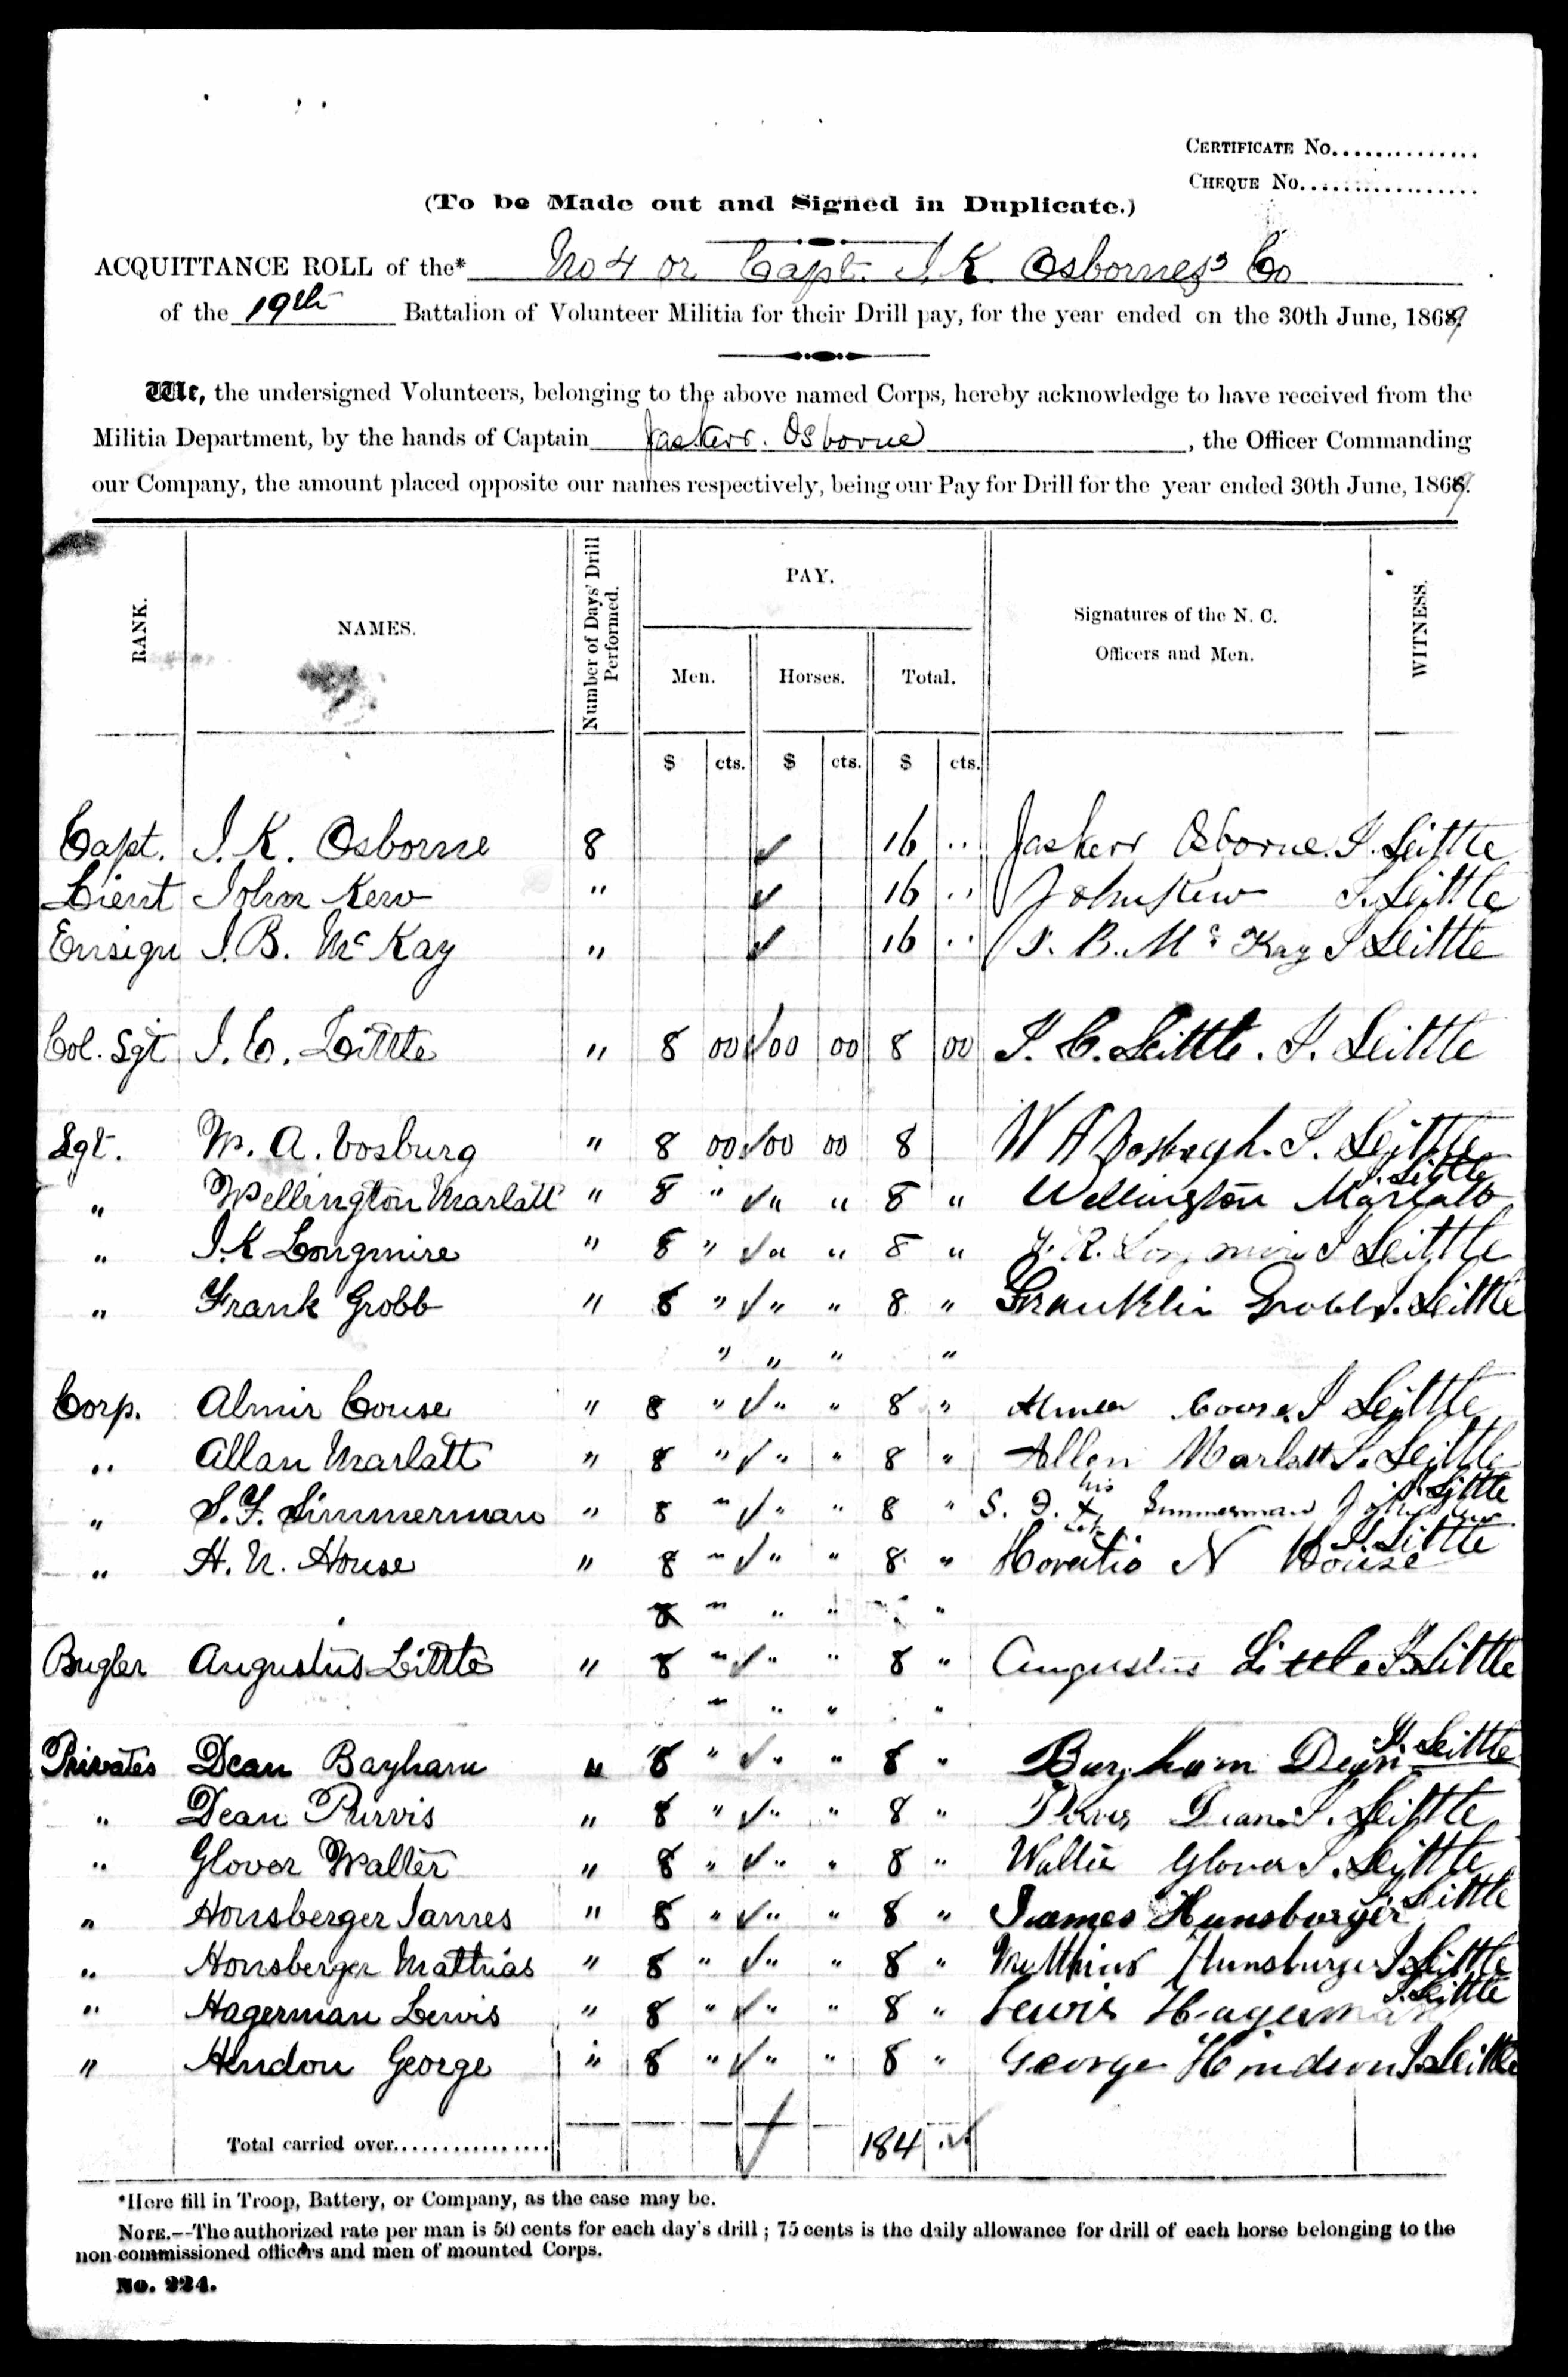 CERTIFICATE No...............
CHEQUE No.................
(To be Made out and Signed in Duplicate.)
ACQUITTANCE ROLL of the* No 4 or Capt. J. K. Osborne's Co
of the 19th Battalion of Volunteer Militia for their Drill pay, for the year ended on the 30th June, 1869.
We, the undersigned Volunteers, belonging to the above named Corps, hereby acknowledge to have received from the
Militia Department, by the hands of Captain Jas Kerr. Osborne, the Officer Commanding
our Company, the amount placed opposite our names respectively, being our Pay for Drill for the year ended 30th June, 1869.
RANK. NAMES. Number of Days' Drill Performed. PAY. Signatures of the N. C. Officers and Men. WITNESS.
Men. Horses. Total.
$ cts. $ cts. $ cts.
Capt. J. K. Osborne 8 ✓ 16 .. Jas Kerr Osborne. J. Little
Lieut John Kew " ✓ 16 .. John Kew J. Little
Ensign J. B. McKay " ✓ 16 .. J. B. McKay J Little
Col. Sgt J. C. Little " 8 00 ✓ 00 00 8 00 J. C. Little. J. Little
Sgt. W. A. Vosburg " 8 00 ✓ 00 00 8 W A Vosburgh. J. Little
" Wellington Marlatt " 8 " ✓ " " 8 " Wellington Marlatt J. Little
" J. K Longmire " 8 " ✓ " " 8 " J. K. Longmire J Little
" Frank Grobb " 8 " ✓ " " 8 " Franklin Grobb J. Little
" " " "
Corp. Almir Couse " 8 " ✓ " " 8 " Couse J Little
" Allan Marlatt " 8 " ✓ " " 8 " Allen Marlatt J. Little
" S. F. Simmerman " 8 " ✓ " " 8 " S. F. his X Simmerman J. Little
" H. N. House " 8 " ✓ " " 8 " Horatio N House J. Little
8 " " " "
Bugler Augustus Little " 8 " ✓ " " 8 " Augustus Little J. Little
" " " "
Privates Dean Bayham " 8 " ✓ " " 8 " Burham Dean J. Little
" Dean Purvis " 8 " ✓ " " 8 " Dean J. Little
" Glover Walter " 8 " ✓ " " 8 " Glover J. Little
" Honsberger James " 8 " ✓ " " 8 " James Hunsburger J. Little
" Honsberger Matthias " 8 " ✓ " " 8 " Matthias Hunsburger J Little
" Hagerman Lewis " 8 " ✓ " " 8 " Lewis Hagerman J. Little
" Hendon George " 8 " ✓ " " 8 " George Hindson J. Little
Total carried over................ 184 ..
*Here fill in Troop, Battery, or Company, as the case may be.
NOTE.--The authorized rate per man is 50 cents for each day's drill ; 75 cents is the daily allowance for drill of each horse belonging to the
non-commissioned officers and men of mounted Corps.
No. 224.